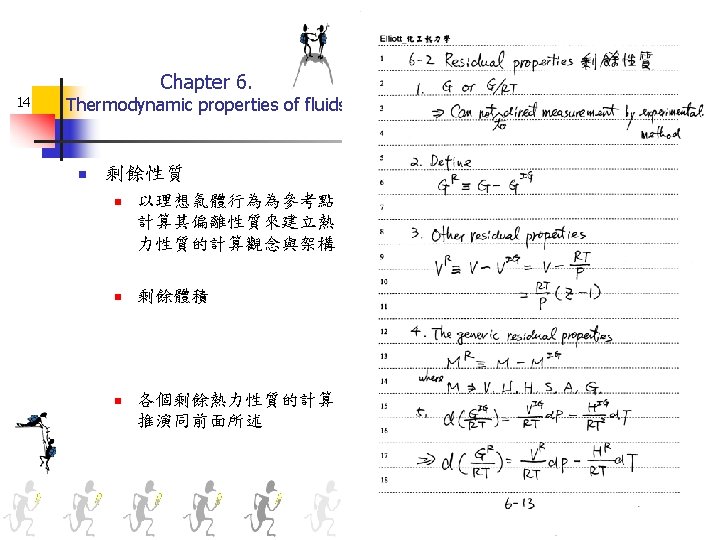 Chapter 6.
14
Thermodynamic properties of fluids
剩餘性質
以理想氣體行為為參考點
計算其偏離性質來建立熱
力性質的計算觀念與架構
剩餘體積
各個剩餘熱力性質的計算
推演同前面所述
Elliott 化工熱力學
1 6-2 Residual properties 剩餘性質
2 1. G or G/RT
3 ⇒ Can not direct measurement by experimental
to
4 method
5 2. Define
6 G^R ≡ G - G^IG
7
8 3. Other residual properties
9 V^R ≡ V - V^IG = V - RT/P
10 = RT/P (Z-1)
11
12 4. The generic residual properties
13 M^R ≡ M - M^IG
14 where M ⇒ V, U, H, S, A, G.
15 5. d(G^IG/RT) = V^IG/RT dP - H^IG/RT² dT
16
17 ⇒ d(G^R/RT) = V^R/RT dP - H^R/RT² dT
18
6-13